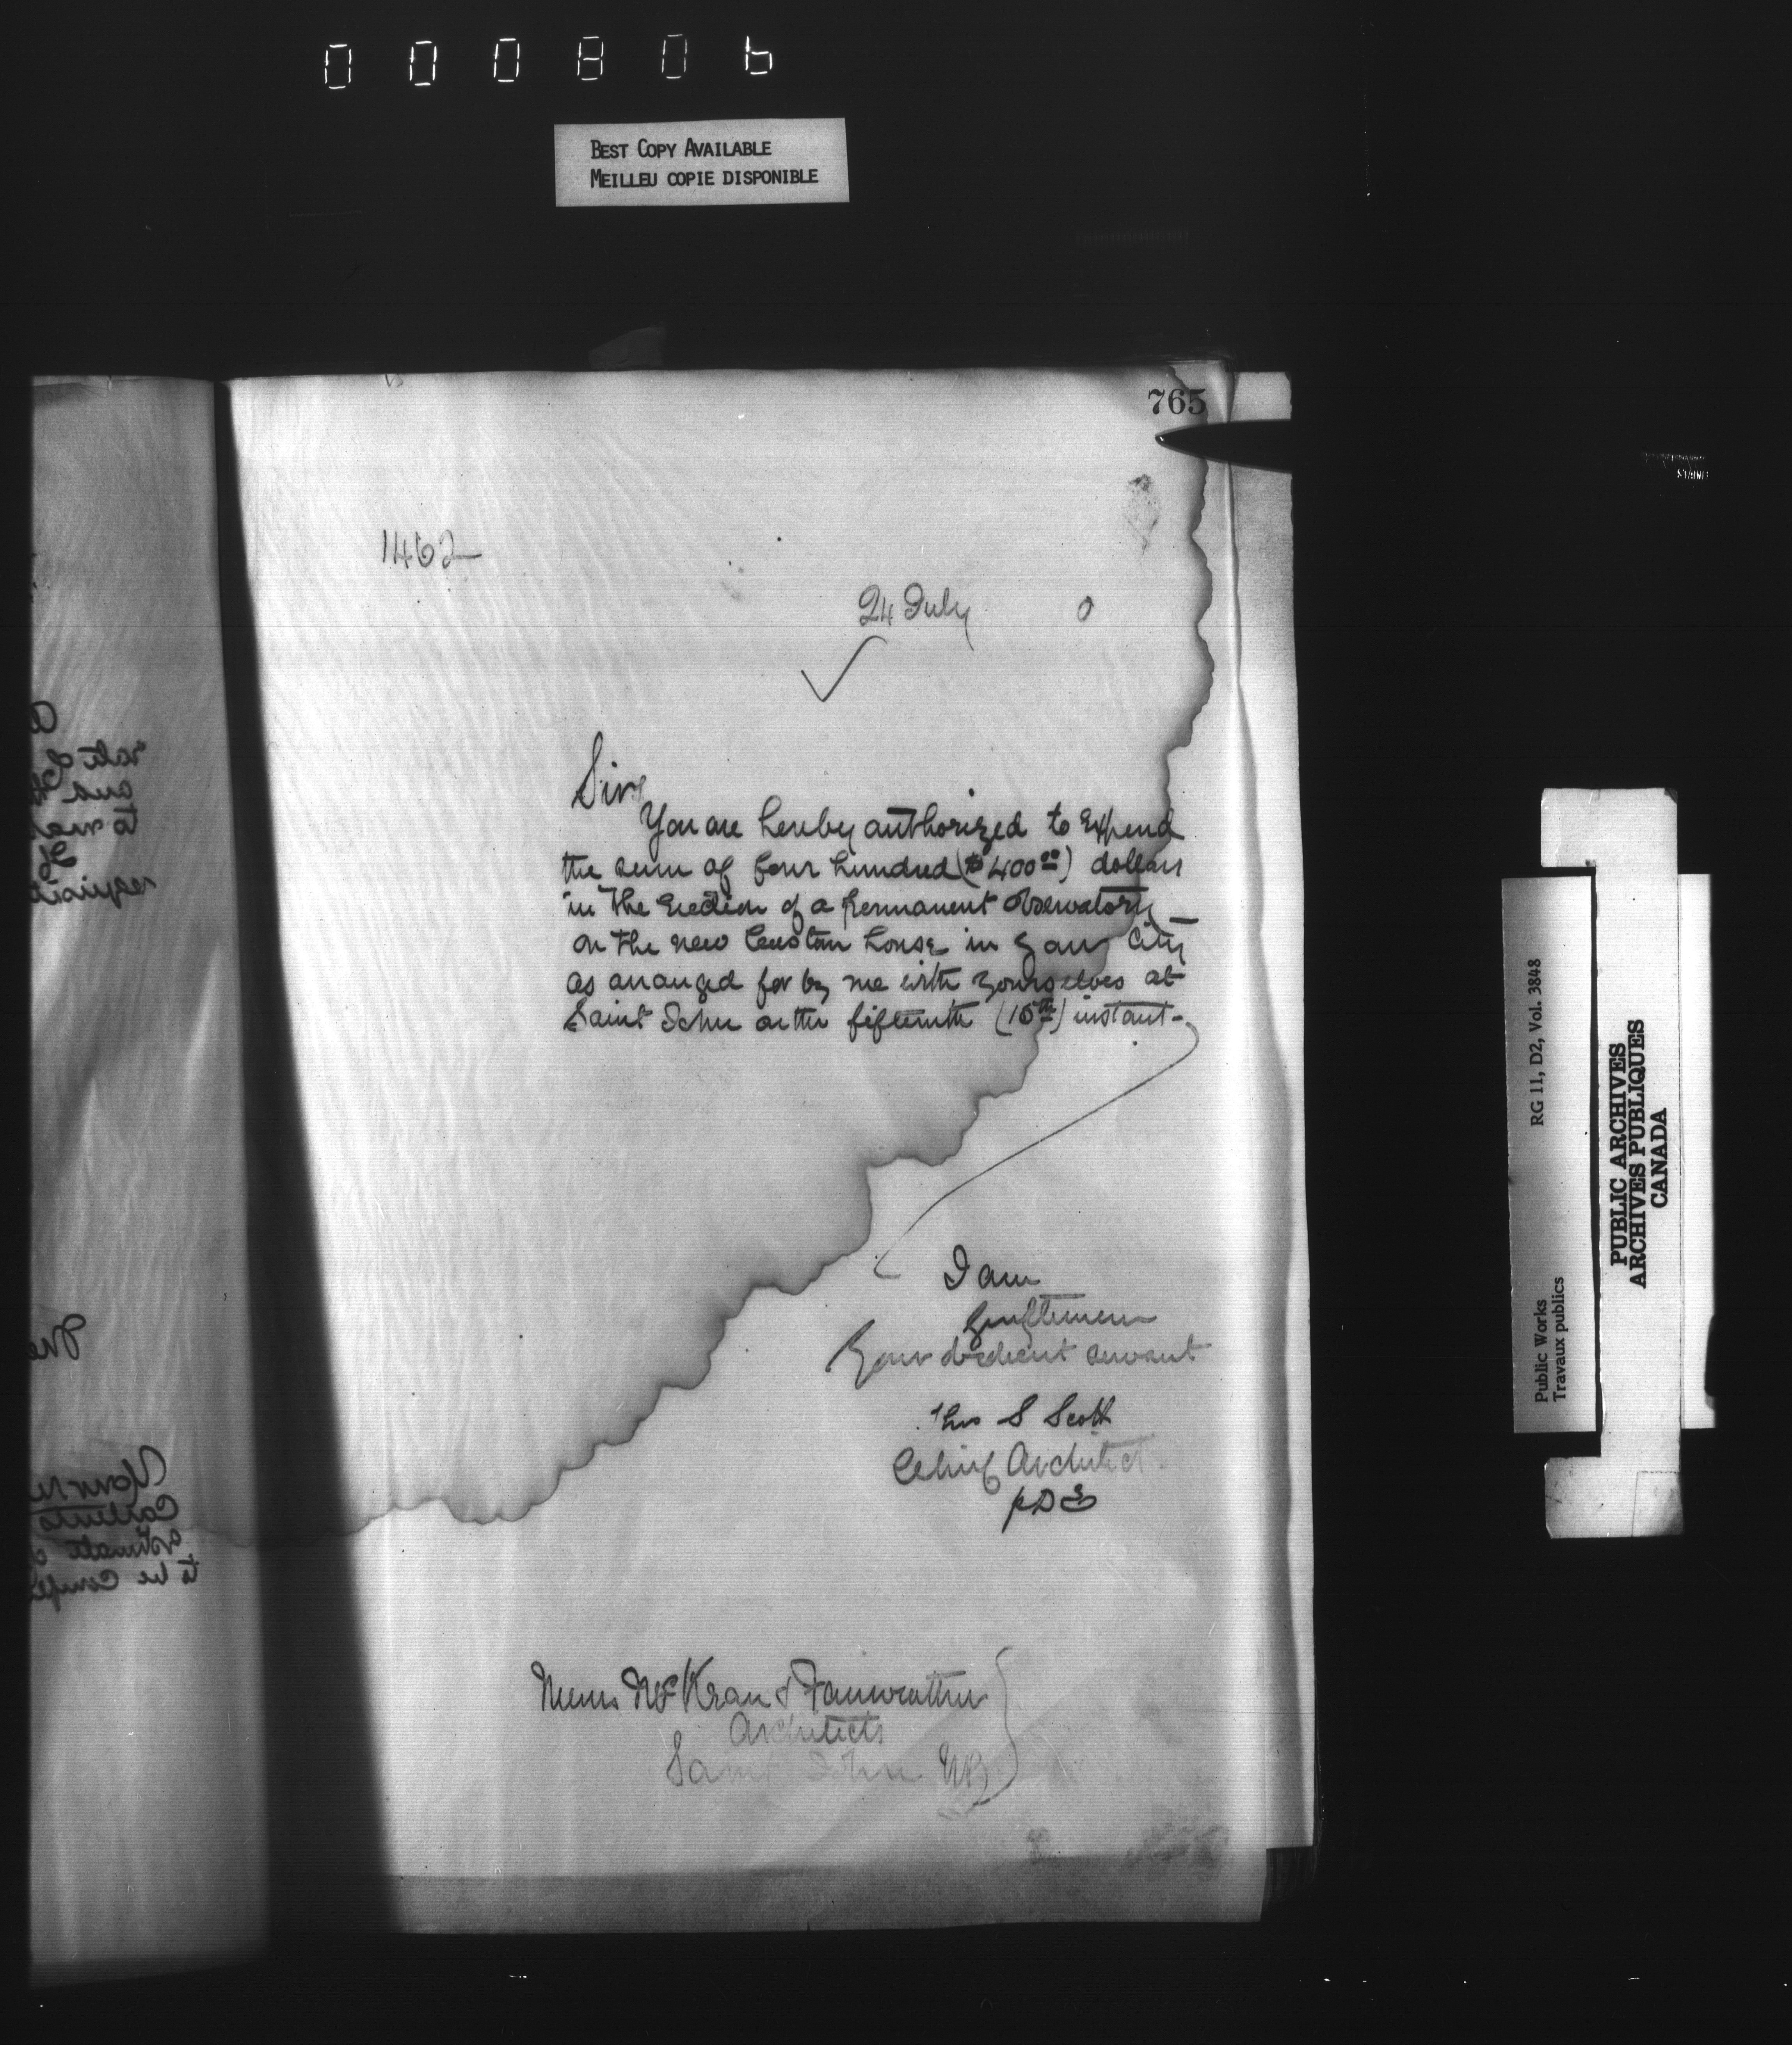 000806
BEST COPY AVAILABLE
MEILLEU COPIE DISPONIBLE
765
1462
24 July 0
Sirs
You are hereby authorized to expend
the sum of four hundred ($400.00) dollars
in the erection of a permanent Observatory
on the new Custom house in your City
as arranged for by me with yourselves at
Saint John on the fifteenth (15th) instant-
I am
Gentlemen
Your obedient servant
Thos S Scott
Chief Architect
Messrs McKean & Fairweather
Architects
Saint John NB
RG 11, D2, Vol. 3848
Public Works
Travaux publics
PUBLIC ARCHIVES
ARCHIVES PUBLIQUES
CANADA